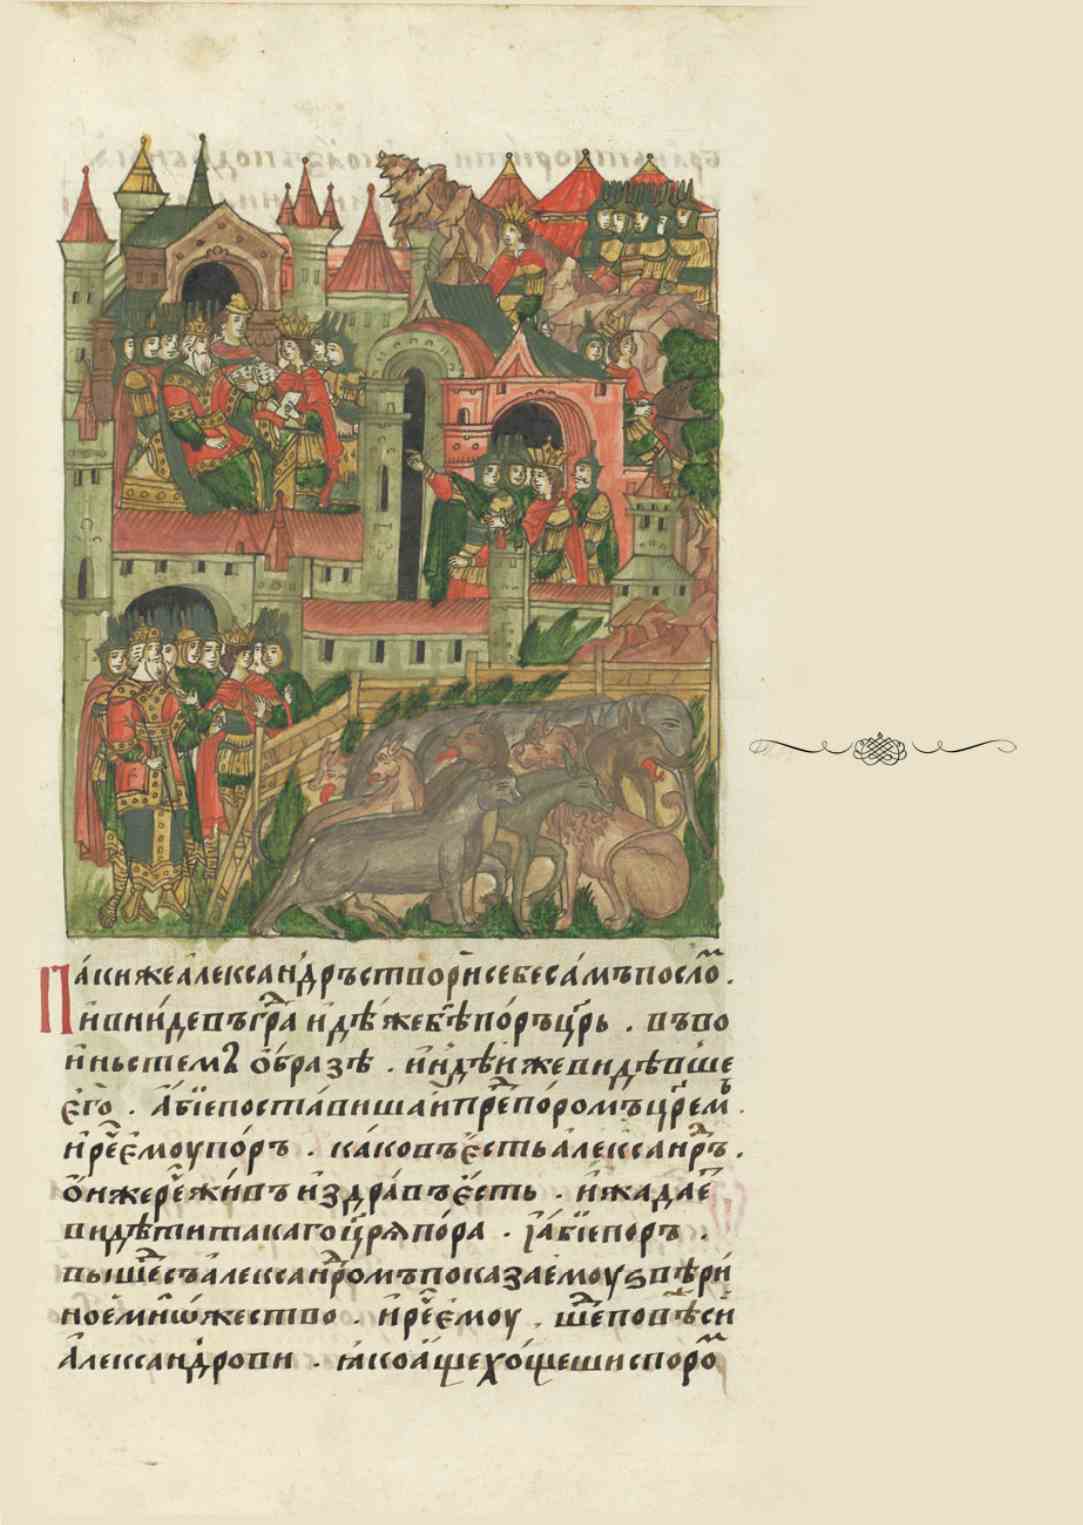 Пакижеалександръствориⷭ҇себесамъпосло᷃м .
ивнидевъгра᷃ идѣжебѣ̾по́ръцр҃ь . въво
иньстемъ о́бразѣ . и́индѣиижевидѣвше
е҆го̀ . А́бїепоста́вишаипре᷃по́ромъцр҃емъ .
ирече҆моупо́ръ . ка́ковъе҆стьалекса᷃нръ .
о́нжерече҆жи́въиздра́въе҆сть . и́жадае҆
видѣтитакагоцр҃япо́ра . и҆а́бїепоръ .
выше᷃съалекса᷃нромъпоказаемоуѕвѣри́
ноемно́жество . ирече҆моу . ше᷃повѣси
А́лександрови . ꙗ́коа́щехо́щешиспоро᷃м